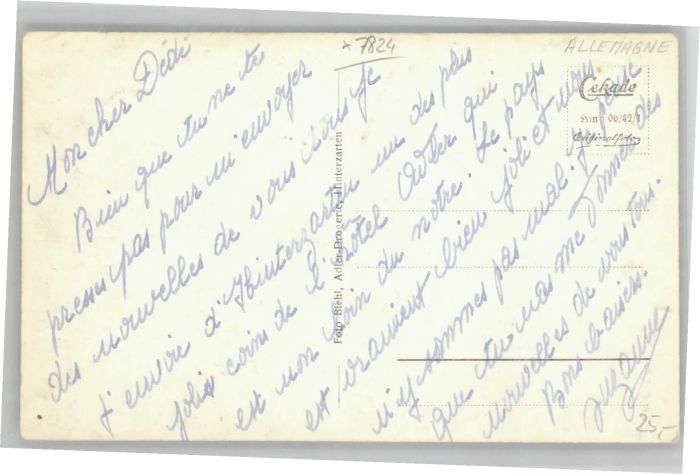 * 7824
ALLEMAGNE
Cekade
Hin 06/42/1
Originalfoto
Foto Biehl, Adler-Drogerie, Hinterzarten
Mon cher Dédi
Bien que tu ne te
presses pas pour m'envoyer
des nouvelles de vous tous je
t'envoie d'Hinterzarten un des plus
jolis coins de l'hôtel Adler qui
est non loin du notre. Le pays
est vraiment bien joli et nous
n'y sommes pas mal. J'espère
que tu vas me donner des
nouvelles de vous tous.
Bons baisers.
Suzanne
25,-